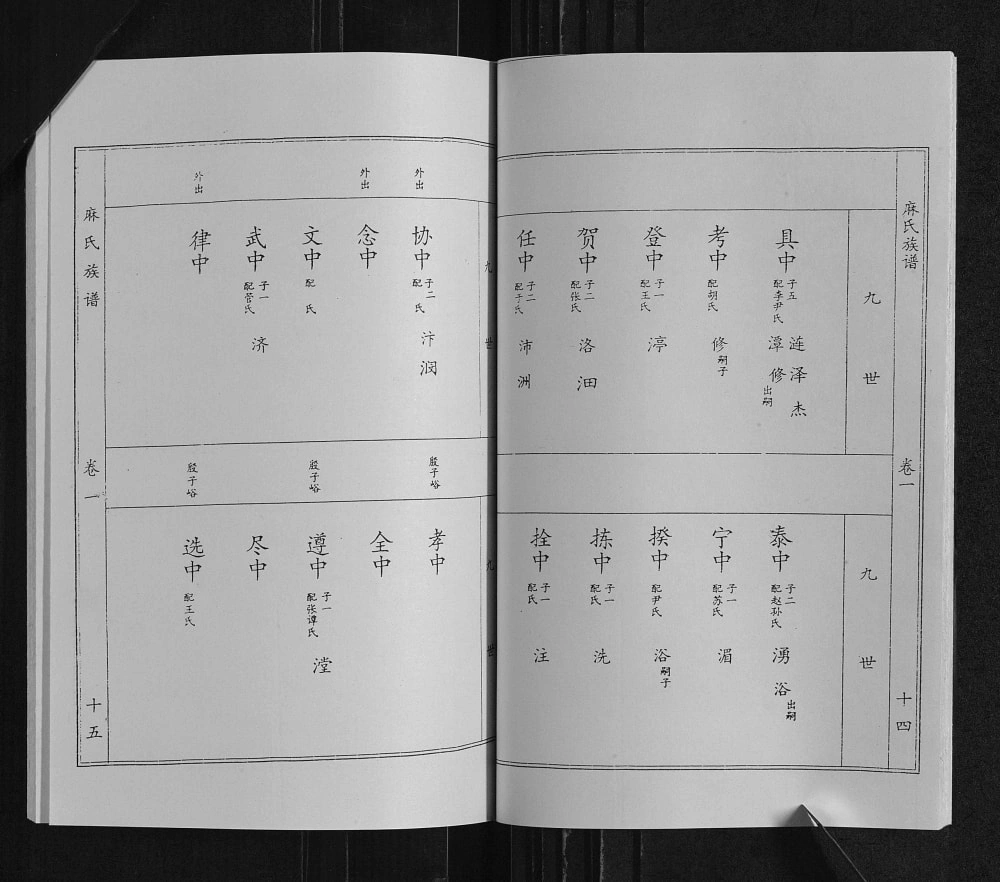 麻氏族谱
卷一
十四
九世
具中
子五
配李尹氏
涟泽杰
潭修
出嗣
考中
配胡氏
修
嗣子
登中
子一
配王氏
渟
贺中
子二
配张氏
洛沺
任中
子二
配于氏
沛洲
九世
泰中
子二
配赵孙氏
湧浴
出嗣
宁中
子一
配苏氏
湄
揆中
配尹氏
浴
嗣子
拣中
子一
配氏
洗
拴中
子一
配氏
注
九世
外出
协中
子二
配 氏
汴润
外出
念中
文中
配 氏
武中
子一
配管氏
济
外出
律中
九世
殷子峪
孝中
全中
殷子峪
遵中
子一
配张谭氏
漟
尽中
殷子峪
选中
配王氏
麻氏族谱
卷一
十五